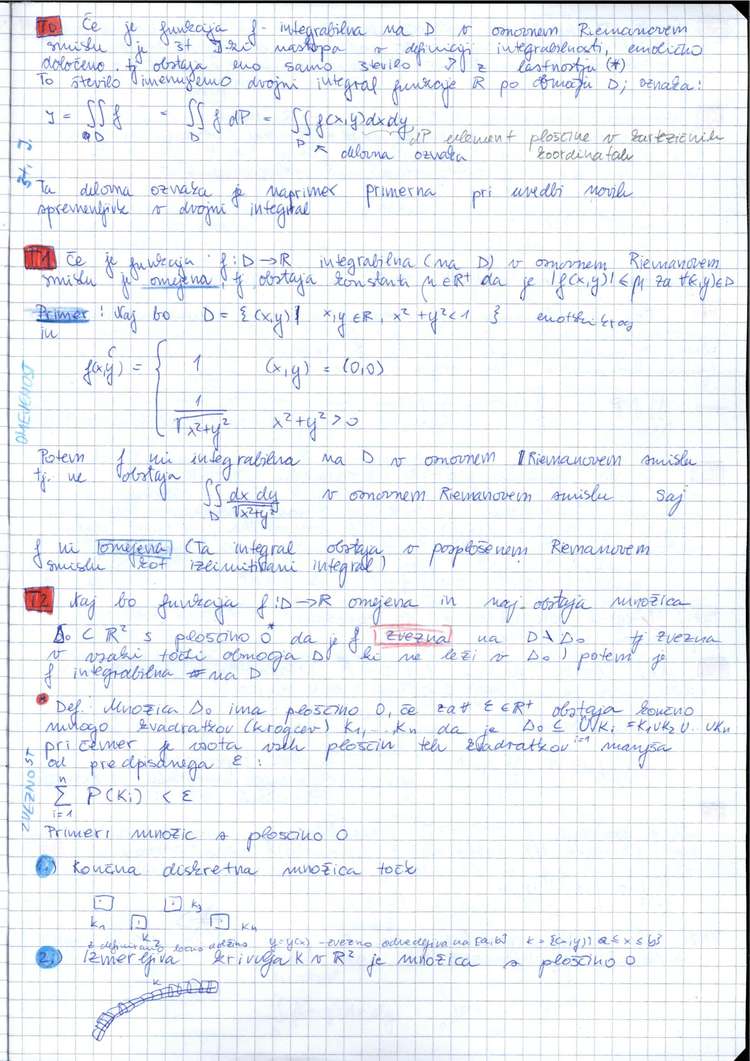 T0 Če je funkcija f integrabilna na D v osnovnem Riemanovem
smislu je št. I ki nastopa v definiciji integrabilnosti, enolično
določeno tj. obstaja eno samo število I z lastnostjo (*)
To število imenujemo dvojni integral funkcije R po območju D; oznaka:
I = ∬_D f = ∬_D f dP = ∬_D f(x,y) dx dy
dP element ploščine v kartezičnih
↖ delovna oznaka koordinatah
Ta delovna oznaka je naprimer primerna pri uvedbi novih
spremenljivk v dvojni integral
ŠT. I.
T1 Če je funkcija f: D → R integrabilna (na D) v osnovnem Riemanovem
smislu je omejena tj. obstaja konstanta μ ∈ R⁺ da je |f(x,y)| ≤ μ za ∀(x,y) ∈ D
Primer: Naj bo D = { (x,y) | x,y ∈ R, x² + y² < 1 } enotski krog
in
f(x,y) = { 1 (x,y) = (0,0)
1/√(x²+y²) x²+y² > 0
OMEJENOST
Potem f ni integrabilna na D v osnovnem Riemanovem smislu
tj. ne obstaja
∬_D dx dy/√(x²+y²) v osnovnem Riemanovem smislu saj
f ni omejena (Ta integral obstaja v posplošenem Riemanovem
smislu kot izlimitirani integral)
T2 Naj bo funkcija f: D → R omejena in naj obstaja množica
D₀ ⊂ R² s ploščino 0* da je f zvezna na D \ D₀ tj zvezna
v vsaki točki območja D ki ne leži v D₀) potem je
f integrabilna na D
* Def. Množica D₀ ima ploščino 0, če za ∀ ε ∈ R⁺ obstaja končno
mnogo kvadratkov (krogcev) K₁,... Kn da je D₀ ⊆ ∪Ki = K₁∪K₂∪... ∪Kn
i=1
pri čemer je vsota vseh ploščin teh kvadratkov manjša
od predpisanega ε:
n
∑ P(Ki) < ε
i=1
ZVEZNOST
Primeri množic s ploščino 0
1.) Končna diskretna množica točk
K₁ K₂ K₃ K₄
z definirano ločno dolžino y=y(x) - zvezno odvedljiva na [a,b] K = {(x,y) | a ≤ x ≤ b}
2.) Izmerljiva krivulja K v R² je množica s ploščino 0
K